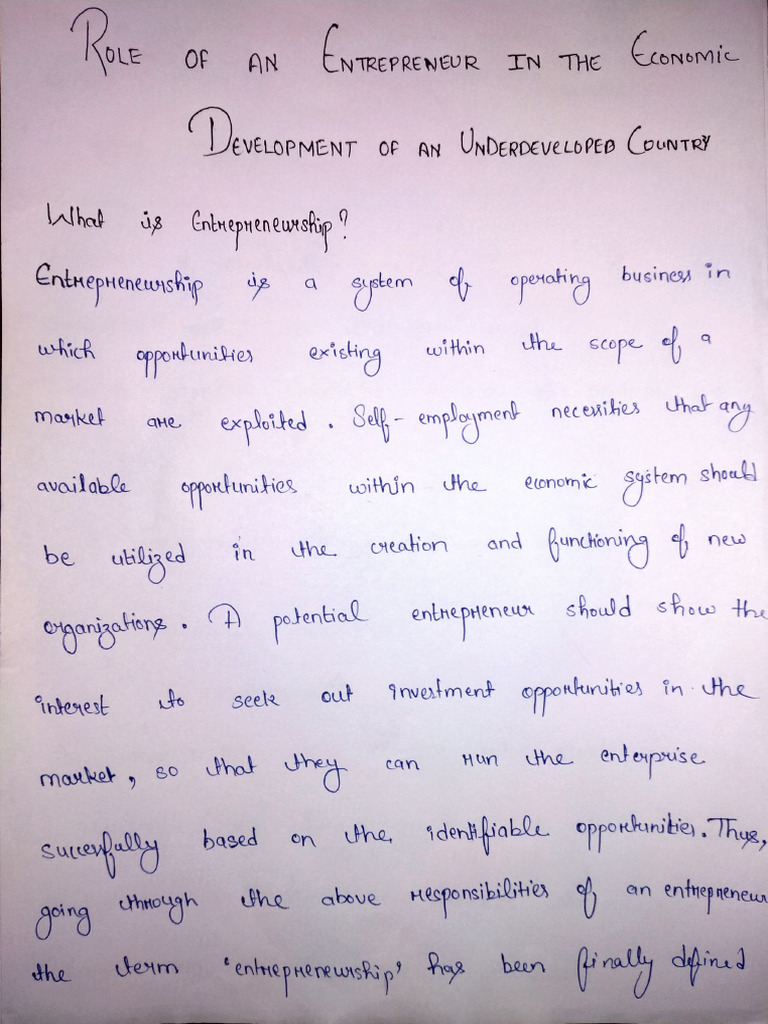 ROLE OF AN ENTREPRENEUR IN THE ECONOMIC
DEVELOPMENT OF AN UNDERDEVELOPED COUNTRY
What is Entrepreneurship?
Entrepreneurship is a system of operating business in
which opportunities existing within the scope of a
market are exploited. Self-employment necessities that any
available opportunities within the economic system should
be utilized in the creation and functioning of new
organizations. A potential entrepreneur should show the
interest to seek out investment opportunities in the
market, so that they can run the enterprise
successfully based on the identifiable opportunities. Thus,
going through the above responsibilities of an entrepreneur
the term 'entrepreneurship' has been finally defined